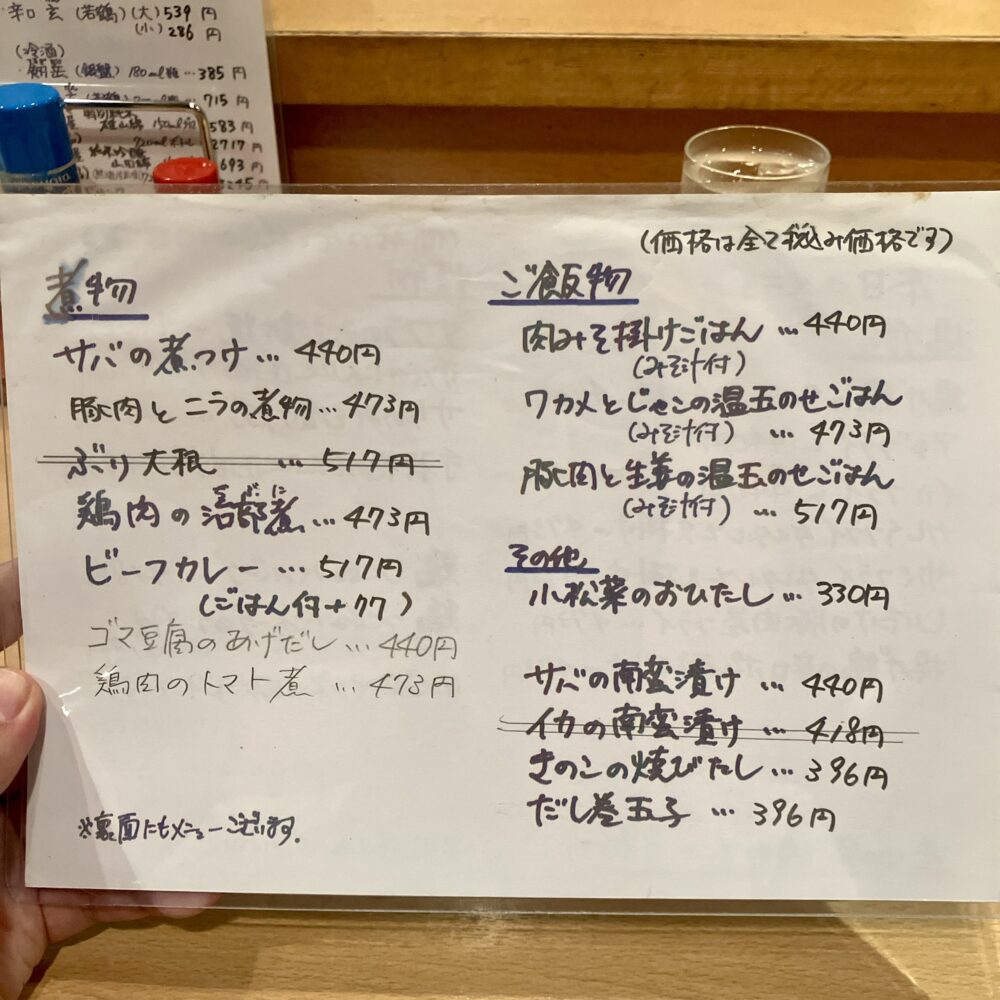 辛口 玄 (若鶴) (大) 539 円
(小) 286 円
(冷酒)
(銀盤) 180ml瓶 … 385 円
715 円
雄山錦 150ml 583 円
720mlボトル 2717 円
山田錦 693 円
(価格は全て税込み価格です)
煮物
サバの煮つけ … 440円
豚肉とニラの煮物 … 473円
ぶり大根 … 517円
鶏肉の治部煮 … 473円
じぶに
ビーフカレー … 517円
(ごはん付+77)
ゴマ豆腐のあげだし … 440円
鶏肉のトマト煮 … 473円
※裏面にもメニューございます。
ご飯物
肉みそ掛けごはん … 440円
(みそ汁付)
ワカメとじゃこの温玉のせごはん
(みそ汁付) … 473円
豚肉と生姜の温玉のせごはん
(みそ汁付) … 517円
その他
小松菜のおひたし … 330円
サバの南蛮漬け … 440円
イカの南蛮漬け … 418円
きのこの焼びたし … 396円
だし巻玉子 … 396円